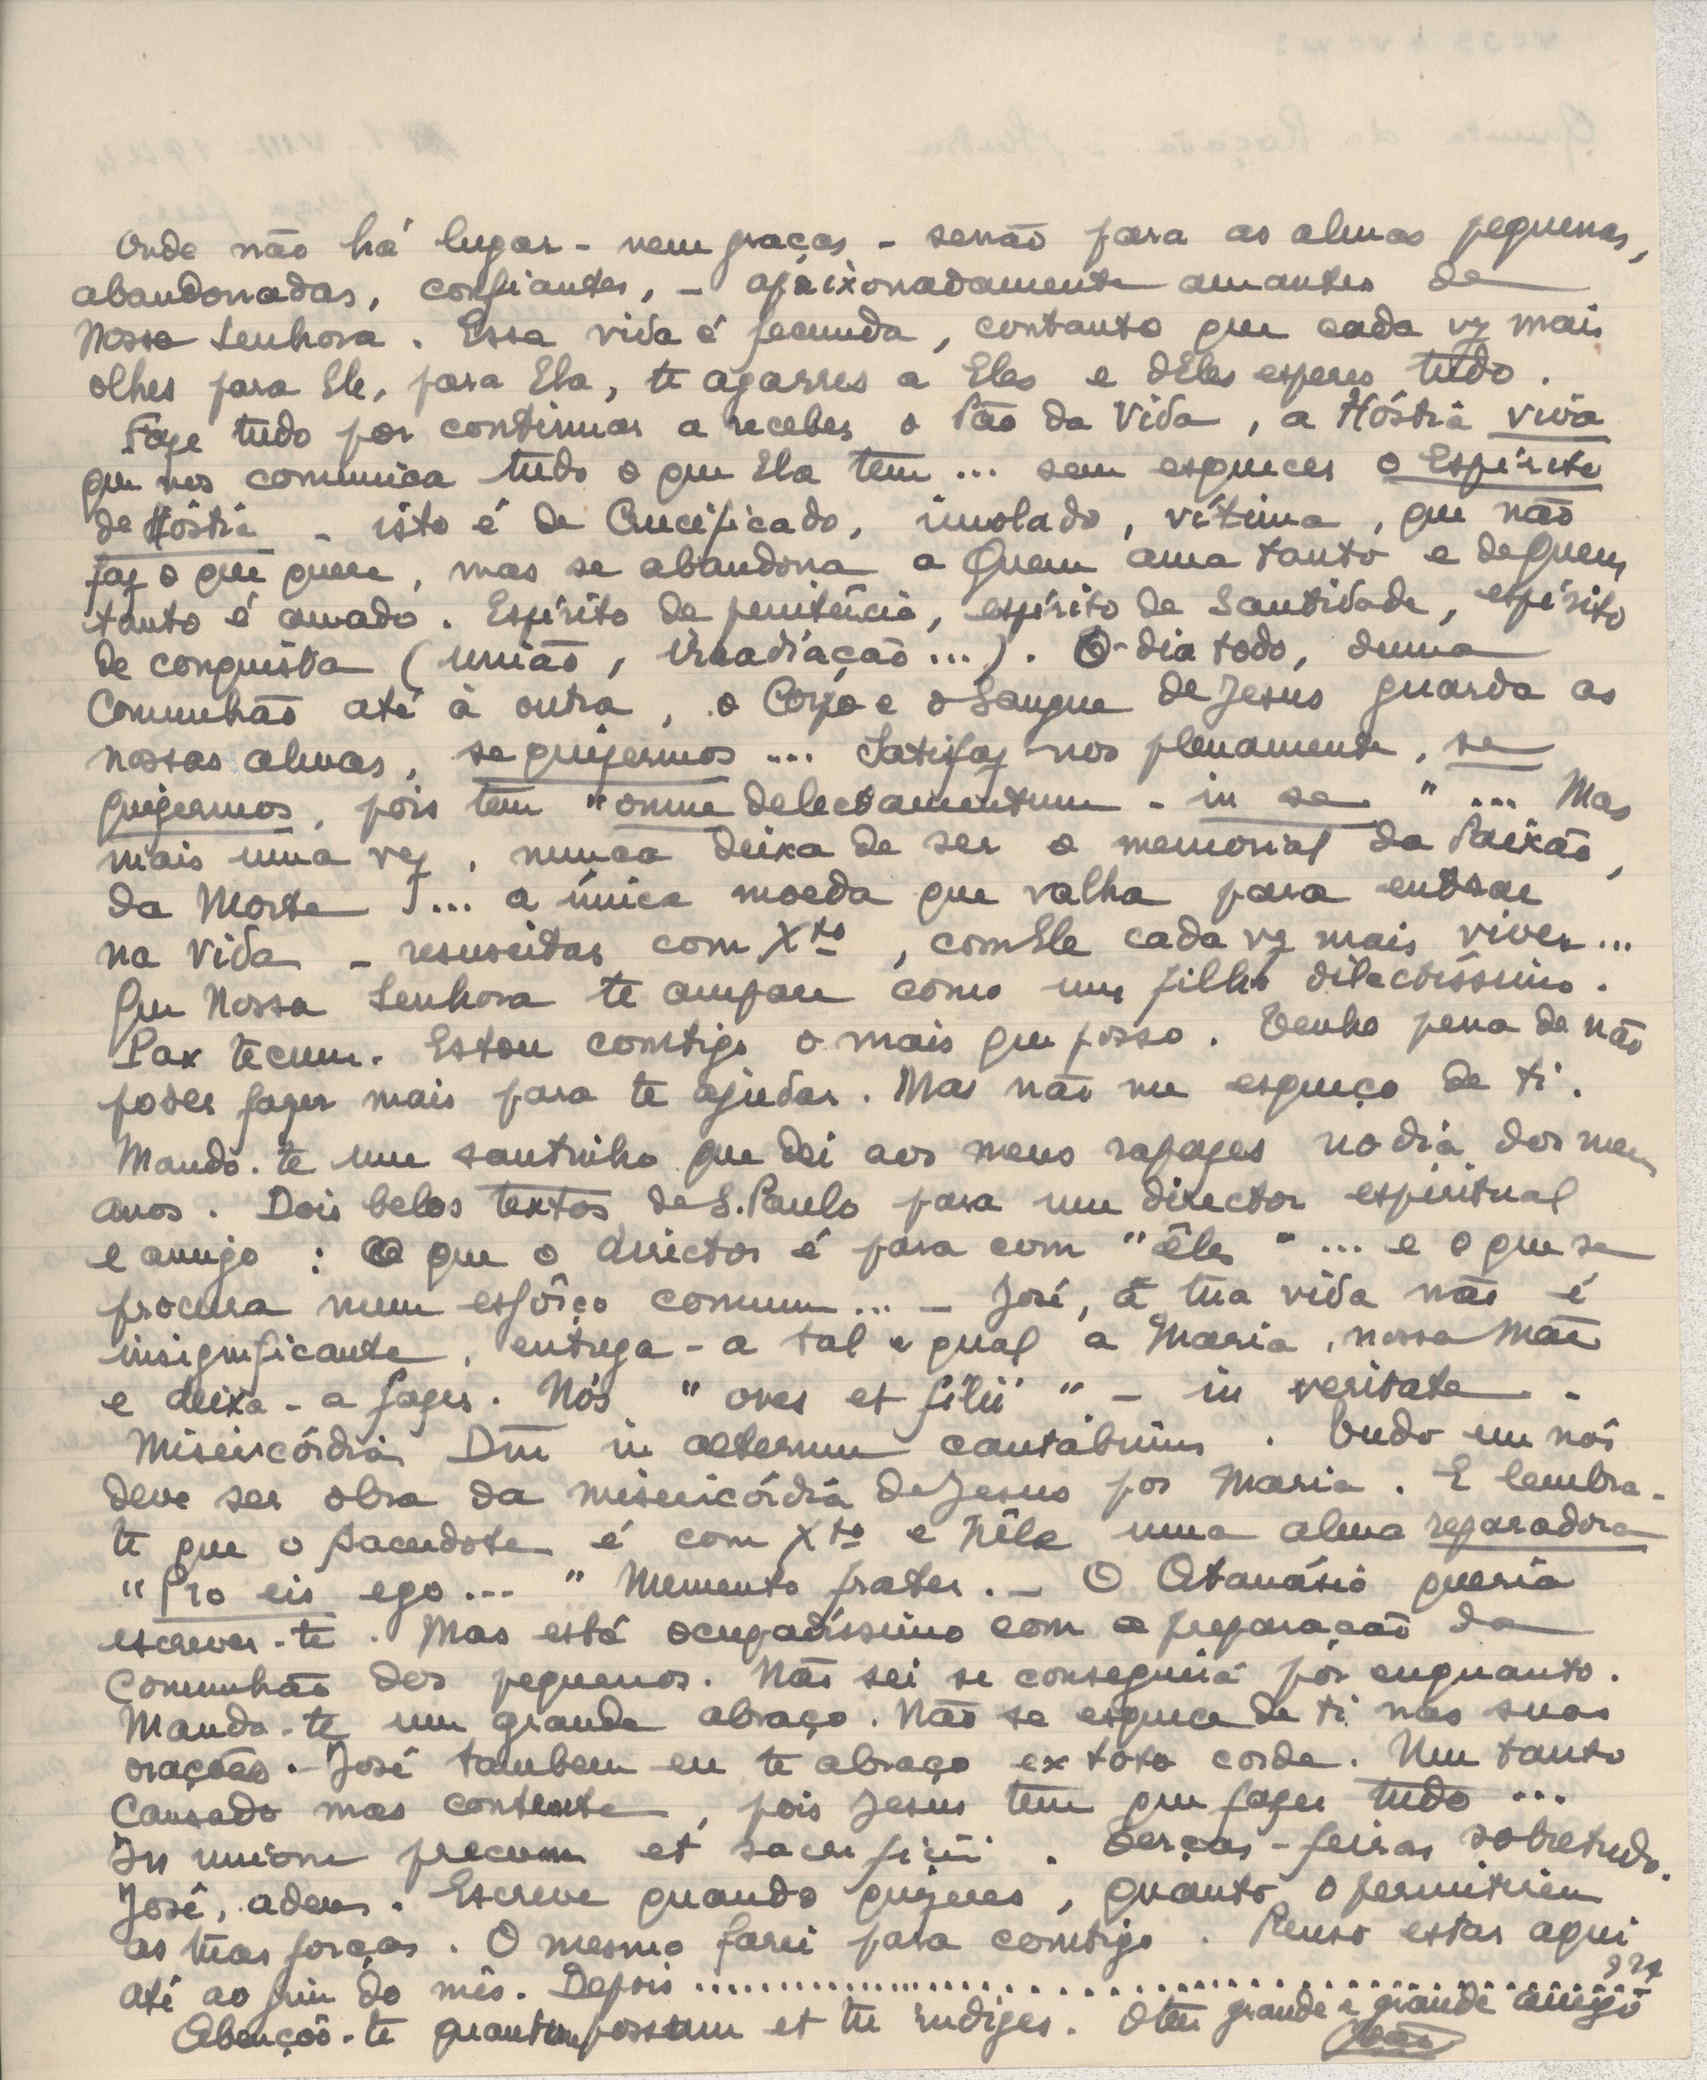 Onde não há lugar - nem graças - senão para as almas pequenas,
abandonadas, confiantes, - apaixonadamente amantes de
Nossa Senhora. Essa vida é fecunda, contanto que cada vez mais
olhes para Ele, para Ela, te agarres a Eles e dEles esperes tudo.
Faze tudo por continuar a receber o Pão da Vida, a Hóstia viva
que nos comunica tudo o que Ela tem... sem esquecer o Espírito
de Hóstia - isto é de Crucificado, imolado, vítima, que não
faz o que quere, mas se abandona a Quem ama tanto e de Quem
tanto é amado. Espírito de penitência, espírito de Santidade, espírito
de conquista (união, irradiação...). O dia todo, duma
Comunhão até à outra, o Corpo e o Sangue de Jesus guarda as
nossas almas, se quizermos... Satisfaz-nos plenamente, se
quizermos, pois tem "omne delectamentum - in se"... Mas
mais uma vez, nunca deixa de ser o memorial da Paixão,
da Morte!... a única moeda que valha para entrar
na Vida - resuscitar com Xto, com Ele cada vez mais viver...
Que Nossa Senhora te ampare como um filho dilectíssimo.
Pax tecum. Estou comtigo o mais que posso. Tenho pena de não
poder fazer mais para te ajudar. Mas não me esqueço de ti.
Mando-te um santinho que dei aos meus rapazes no dia dos meus
anos. Dois belos textos de S. Paulo para um director espiritual
e amigo: O que o director é para com "êles"... e o que se
procura num esfôrço comum... - José, a tua vida não é
insignificante, entrega-a tal e qual a Maria, nossa Mãe
e deixa-a fazer. Nós "oves et filii" - in veritate -
Misericórdia Dni in aeternum cantábimus. Tudo em nós
deve ser obra da misericórdia de Jesus por Maria. E lembra-
te que o sacerdote é com Xto e nêle uma alma reparadora
"Pro eis ego..." Memento frater. - O Atanásio queria
escrever-te. Mas está ocupadíssimo com a preparação da
Comunhão dos pequenos. Não sei se conseguirá por enquanto.
Manda-te um grande abraço. Não se esquece de ti nas suas
orações. José tambem eu te abraço ex toto corde. Um tanto
cansado mas contente, pois Jesus tem que fazer tudo...
In unione precum et sacrificii. Terças-feiras sobretudo.
José, adeus. Escreve quando quizeres, quanto o permitirem
as tuas forças. O mesmo farei para comtigo. Penso estar aqui
até ao fim do mês. Depois ........................ ???
Abençôo-te quantum possum et tu indiges. O teu grande e grande amigo